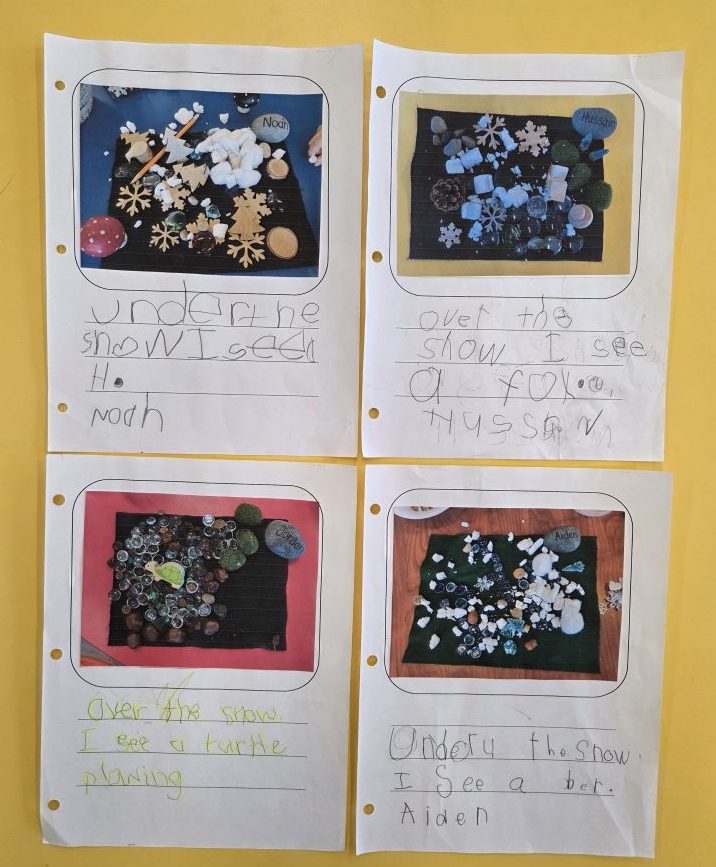 Noah
under the
snow I seea
H.
Noah
Hussain
over the
snow I see
a fox.
Hussain
Jordan
over the snow.
I see a turtle
plawing
Aiden
Underu the snow.
I see a ber.
Aiden